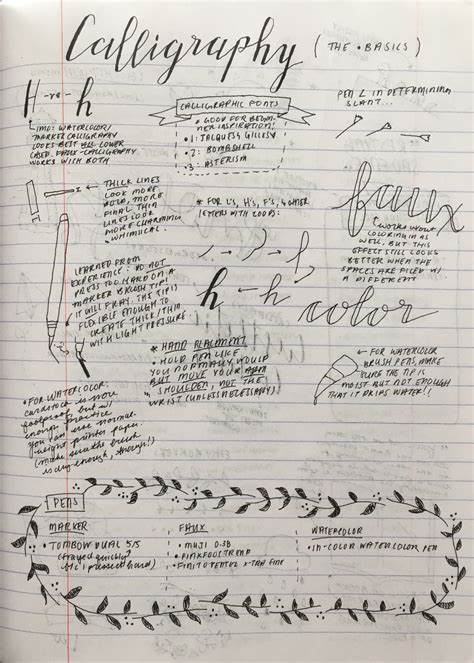 Calligraphy (THE •BASICS)
H -vs- h
IMO: WATERCOLOR/
MARKER CALLIGRAPHY
LOOKS BEST ALL LOWER
CASED. FAUX-CALLIGRAPHY
WORKS WITH BOTH
CALLIGRAPHIC FONTS
• GOOD FOR BEGIN-
NER INSPIRATION!
• 1: JACQUES & GILLES
• 2: BOMBSHELL
• 3: ASTERISM
PEN ∠ IN DETERMINING
SLANT...
← THICK LINES
LOOK MORE
BOLD, MORE
FINAL. THIN
LINES LOOK
MORE CHARMING,
WHIMSICAL.
* FOR L'S, H'S, F'S, & OTHER
LETTERS WITH LOOPS:
h - h
faux
WORKS W/OUT
COLORING IN AS
WELL, BUT THIS
EFFECT STILL LOOKS
BETTER WHEN THE
SPACES ARE FILLED W/
A DIFFERENT
color
LEARNED FROM
EXPERIENCE: DO NOT
PRESS TOO HARD ON A
MARKER BRUSH TIP!
IT WILL FRAY. THE TIP IS
FLEXIBLE ENOUGH TO
CREATE THICK/THIN
W/ LIGHT PRESSURE.
* HAND PLACEMENT
• HOLD PEN LIKE
YOU NORMALLY WOULD
BUT MOVE YOUR
SHOULDER, NOT THE
WRIST (UNLESS NECESSARY)
← FOR WATERCOLOR
BRUSH PENS, MAKE
SURE THE TIP IS
MOIST BUT NOT ENOUGH
THAT IT DRIPS WATER!
• FOR WATERCOLOR:
cardstock is now
foolproof, but w/
enough practice
you can use normal-
weight printer paper.
(make sure the brush
is dry enough, though!)
PENS
MARKER
• TOMBOW DUAL 515
(frayed quickly
b/c i pressed hard)
FAUX
• MUJI 0.38
• PINKFOOT
• X-TRA FINE
WATERCOLOR
• IN-COLOR WATERCOLOR PEN